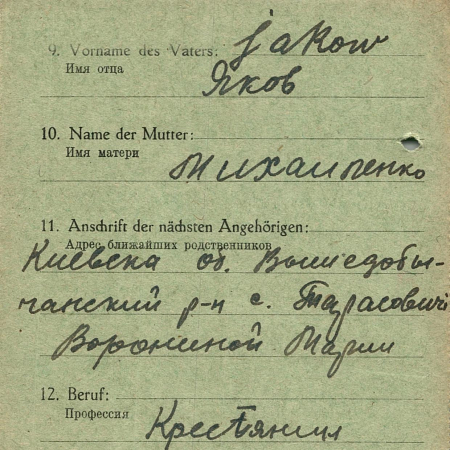 9. Vorname des Vaters: Jakow
Имя отца
Яков
10. Name der Mutter:
Имя матери
Михайленко
11. Anschrift der nächsten Angehörigen:
Адрес ближайших родственников
Киевска об. Вышедобы-
чанский р-н с. Тарасовичи
Ворониной Марии
12. Beruf:
Профессия
Крестянин